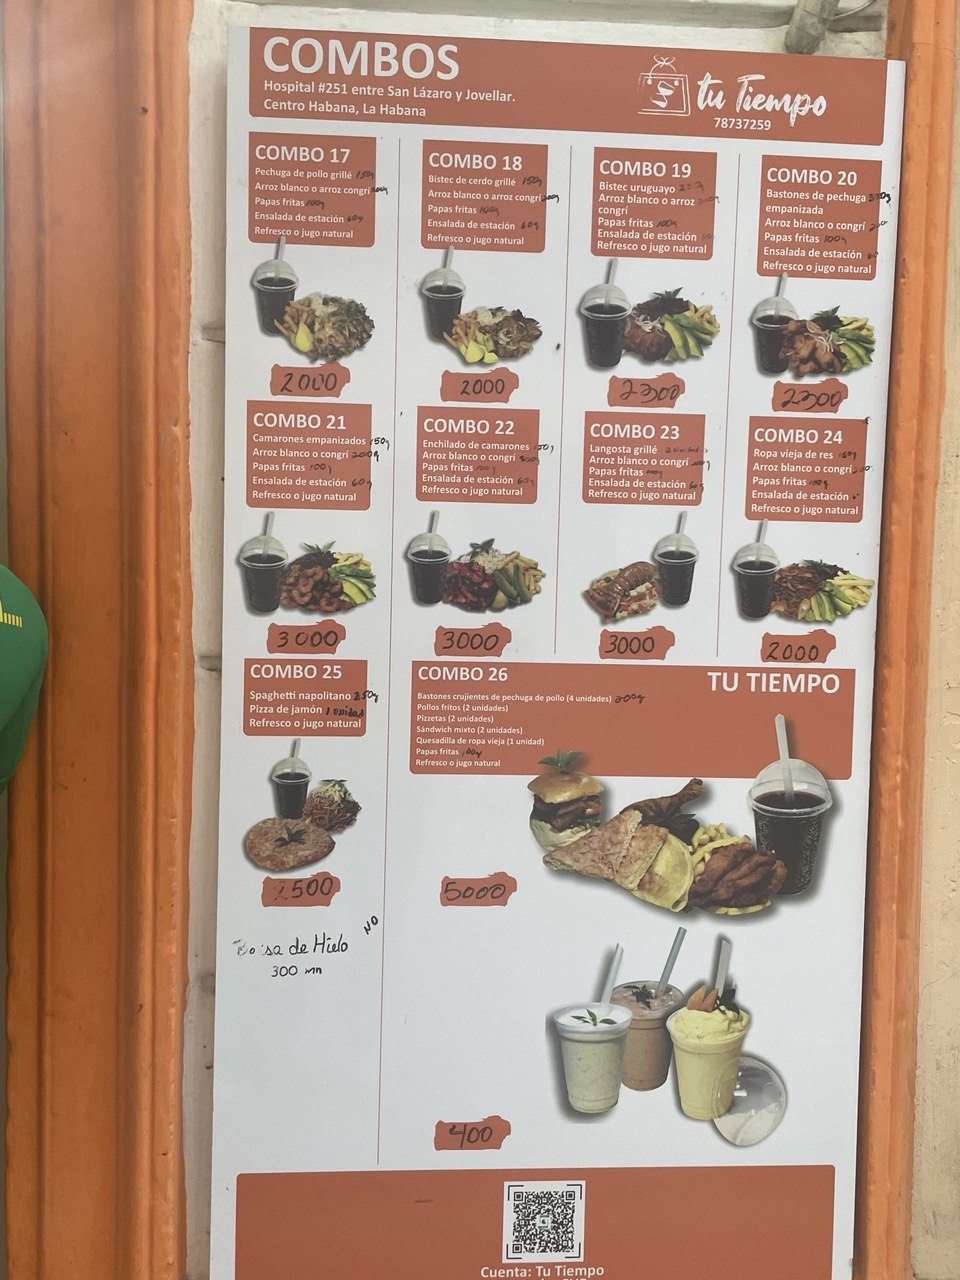 COMBOS
Hospital #251 entre San Lázaro y Jovellar.
Centro Habana, La Habana
tu Tiempo
78737259
COMBO 17
Pechuga de pollo grillé 150g
Arroz blanco o arroz congrí 200g
Papas fritas 100g
Ensalada de estación 60g
Refresco o jugo natural
2000
COMBO 18
Bistec de cerdo grillé 150g
Arroz blanco o arroz congrí 200g
Papas fritas 100g
Ensalada de estación 60g
Refresco o jugo natural
2000
COMBO 19
Bistec uruguayo
Arroz blanco o arroz
congrí
Papas fritas 100g
Ensalada de estación
Refresco o jugo natural
2300
COMBO 20
Bastones de pechuga
empanizada
Arroz blanco o congrí
Papas fritas 100g
Ensalada de estación
Refresco o jugo natural
2300
COMBO 21
Camarones empanizados 150g
Arroz blanco o congrí 200g
Papas fritas 100g
Ensalada de estación 60g
Refresco o jugo natural
3000
COMBO 22
Enchilado de camarones 150g
Arroz blanco o congrí
Papas fritas 100g
Ensalada de estación 60g
Refresco o jugo natural
3000
COMBO 23
Langosta grillé
Arroz blanco o congrí 200g
Papas fritas
Ensalada de estación
Refresco o jugo natural
3000
COMBO 24
Ropa vieja de res 150g
Arroz blanco o congrí
Papas fritas 100g
Ensalada de estación
Refresco o jugo natural
2000
COMBO 25
Spaghetti napolitano 250g
Pizza de jamón 1 unidad
Refresco o jugo natural
2500
COMBO 26
TU TIEMPO
Bastones crujientes de pechuga de pollo (4 unidades) 200g
Pollos fritos (2 unidades)
Pizzetas (2 unidades)
Sándwich mixto (2 unidades)
Quesadilla de ropa vieja (1 unidad)
Papas fritas 100g
Refresco o jugo natural
5000
Bolsa de Hielo NO
300 mn
400
Cuenta: Tu Tiempo